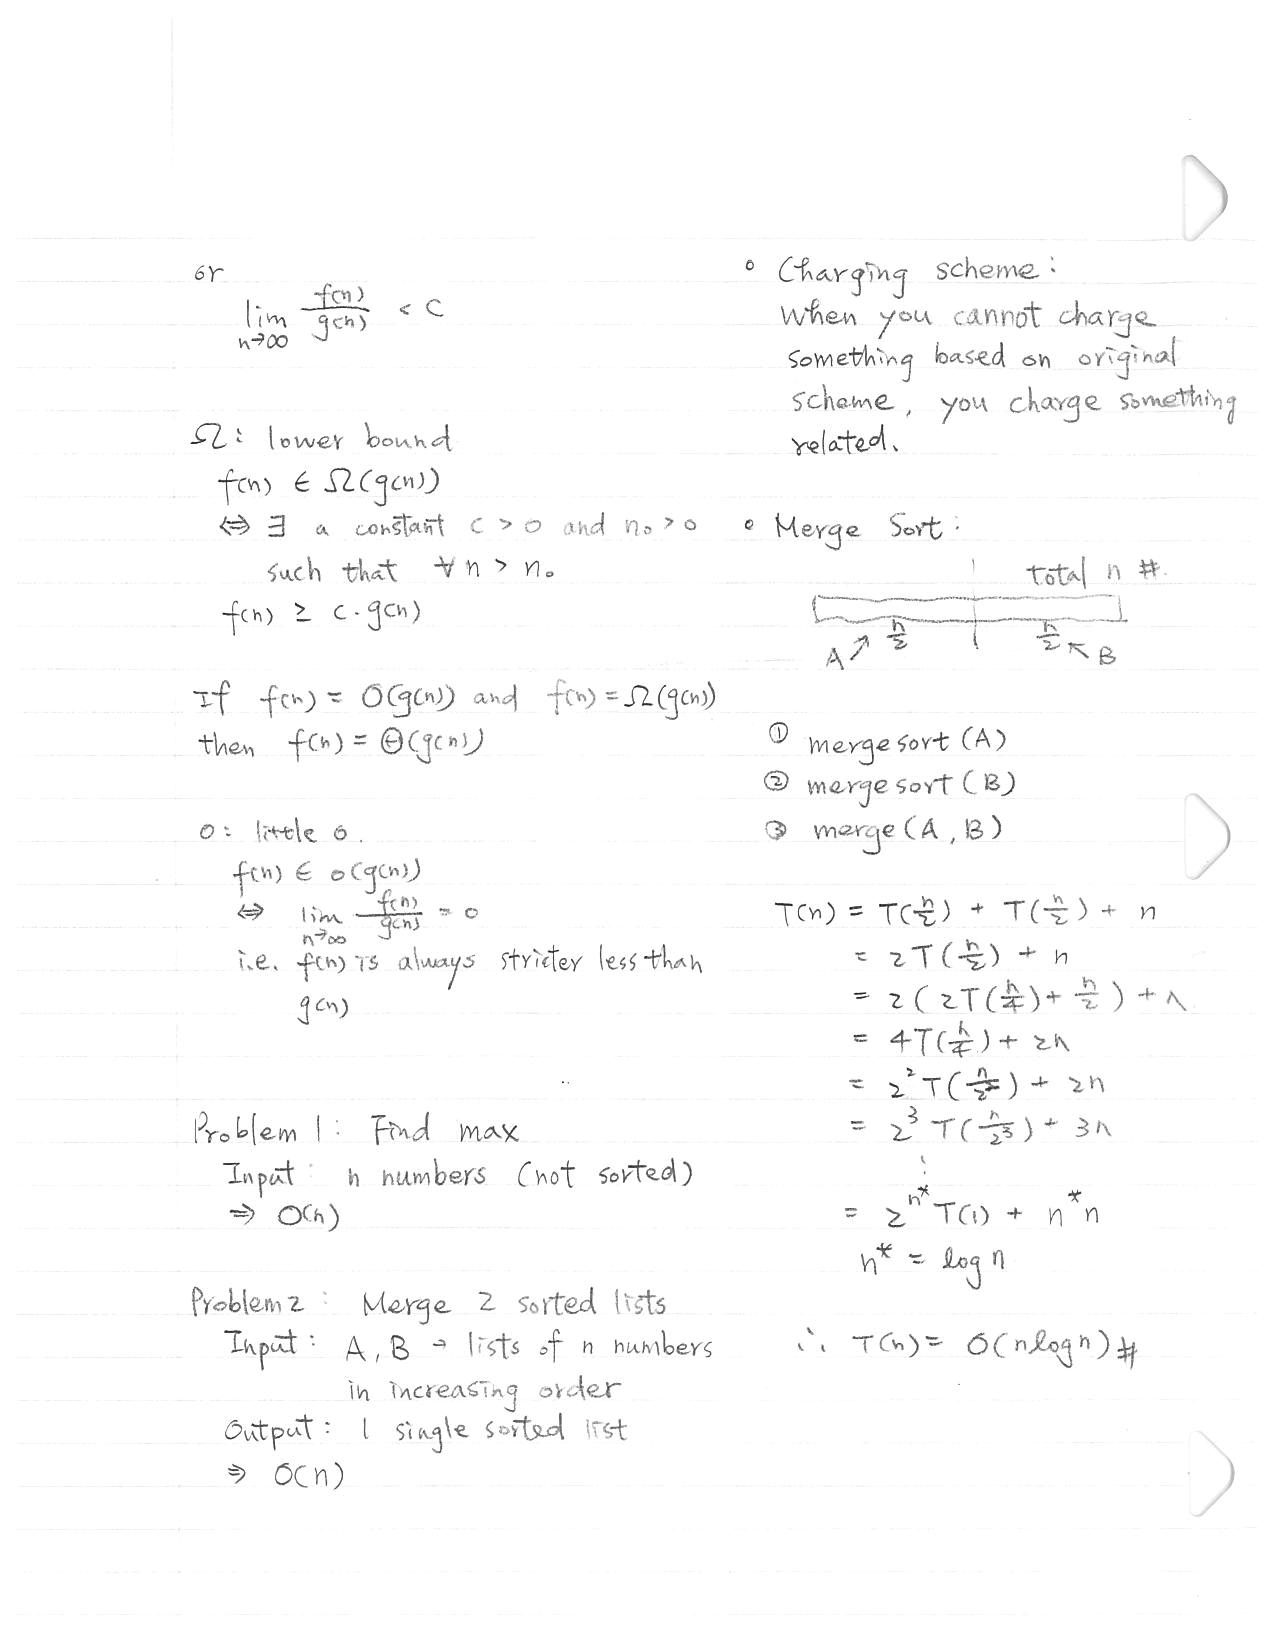 or
lim n→∞ f(n)/g(n) < C
Ω: lower bound
f(n) ∈ Ω(g(n))
⇔ ∃ a constant c > 0 and n₀ > 0
such that ∀n > n₀
f(n) ≥ c·g(n)
If f(n) = O(g(n)) and f(n) = Ω(g(n))
then f(n) = Θ(g(n))
o: little o.
f(n) ∈ o(g(n))
⇔ lim n→∞ f(n)/g(n) = 0
i.e. f(n) is always stricter less than
g(n)
Problem 1: Find max
Input: n numbers (not sorted)
⇒ O(n)
Problem 2: Merge 2 sorted lists
Input: A, B → lists of n numbers
in increasing order
Output: 1 single sorted list
⇒ O(n)
∘ Charging scheme:
when you cannot charge
something based on original
scheme, you charge something
related.
∘ Merge Sort:
total n #.
n/2 n/2
A↗ ↖B
① mergesort(A)
② mergesort(B)
③ merge(A, B)
T(n) = T(n/2) + T(n/2) + n
= 2T(n/2) + n
= 2(2T(n/4) + n/2) + n
= 4T(n/4) + 2n
= 2² T(n/2²) + 2n
= 2³ T(n/2³) + 3n
⋮
= 2^n* T(1) + n* n
n* = log n
∴ T(n) = O(n log n) #